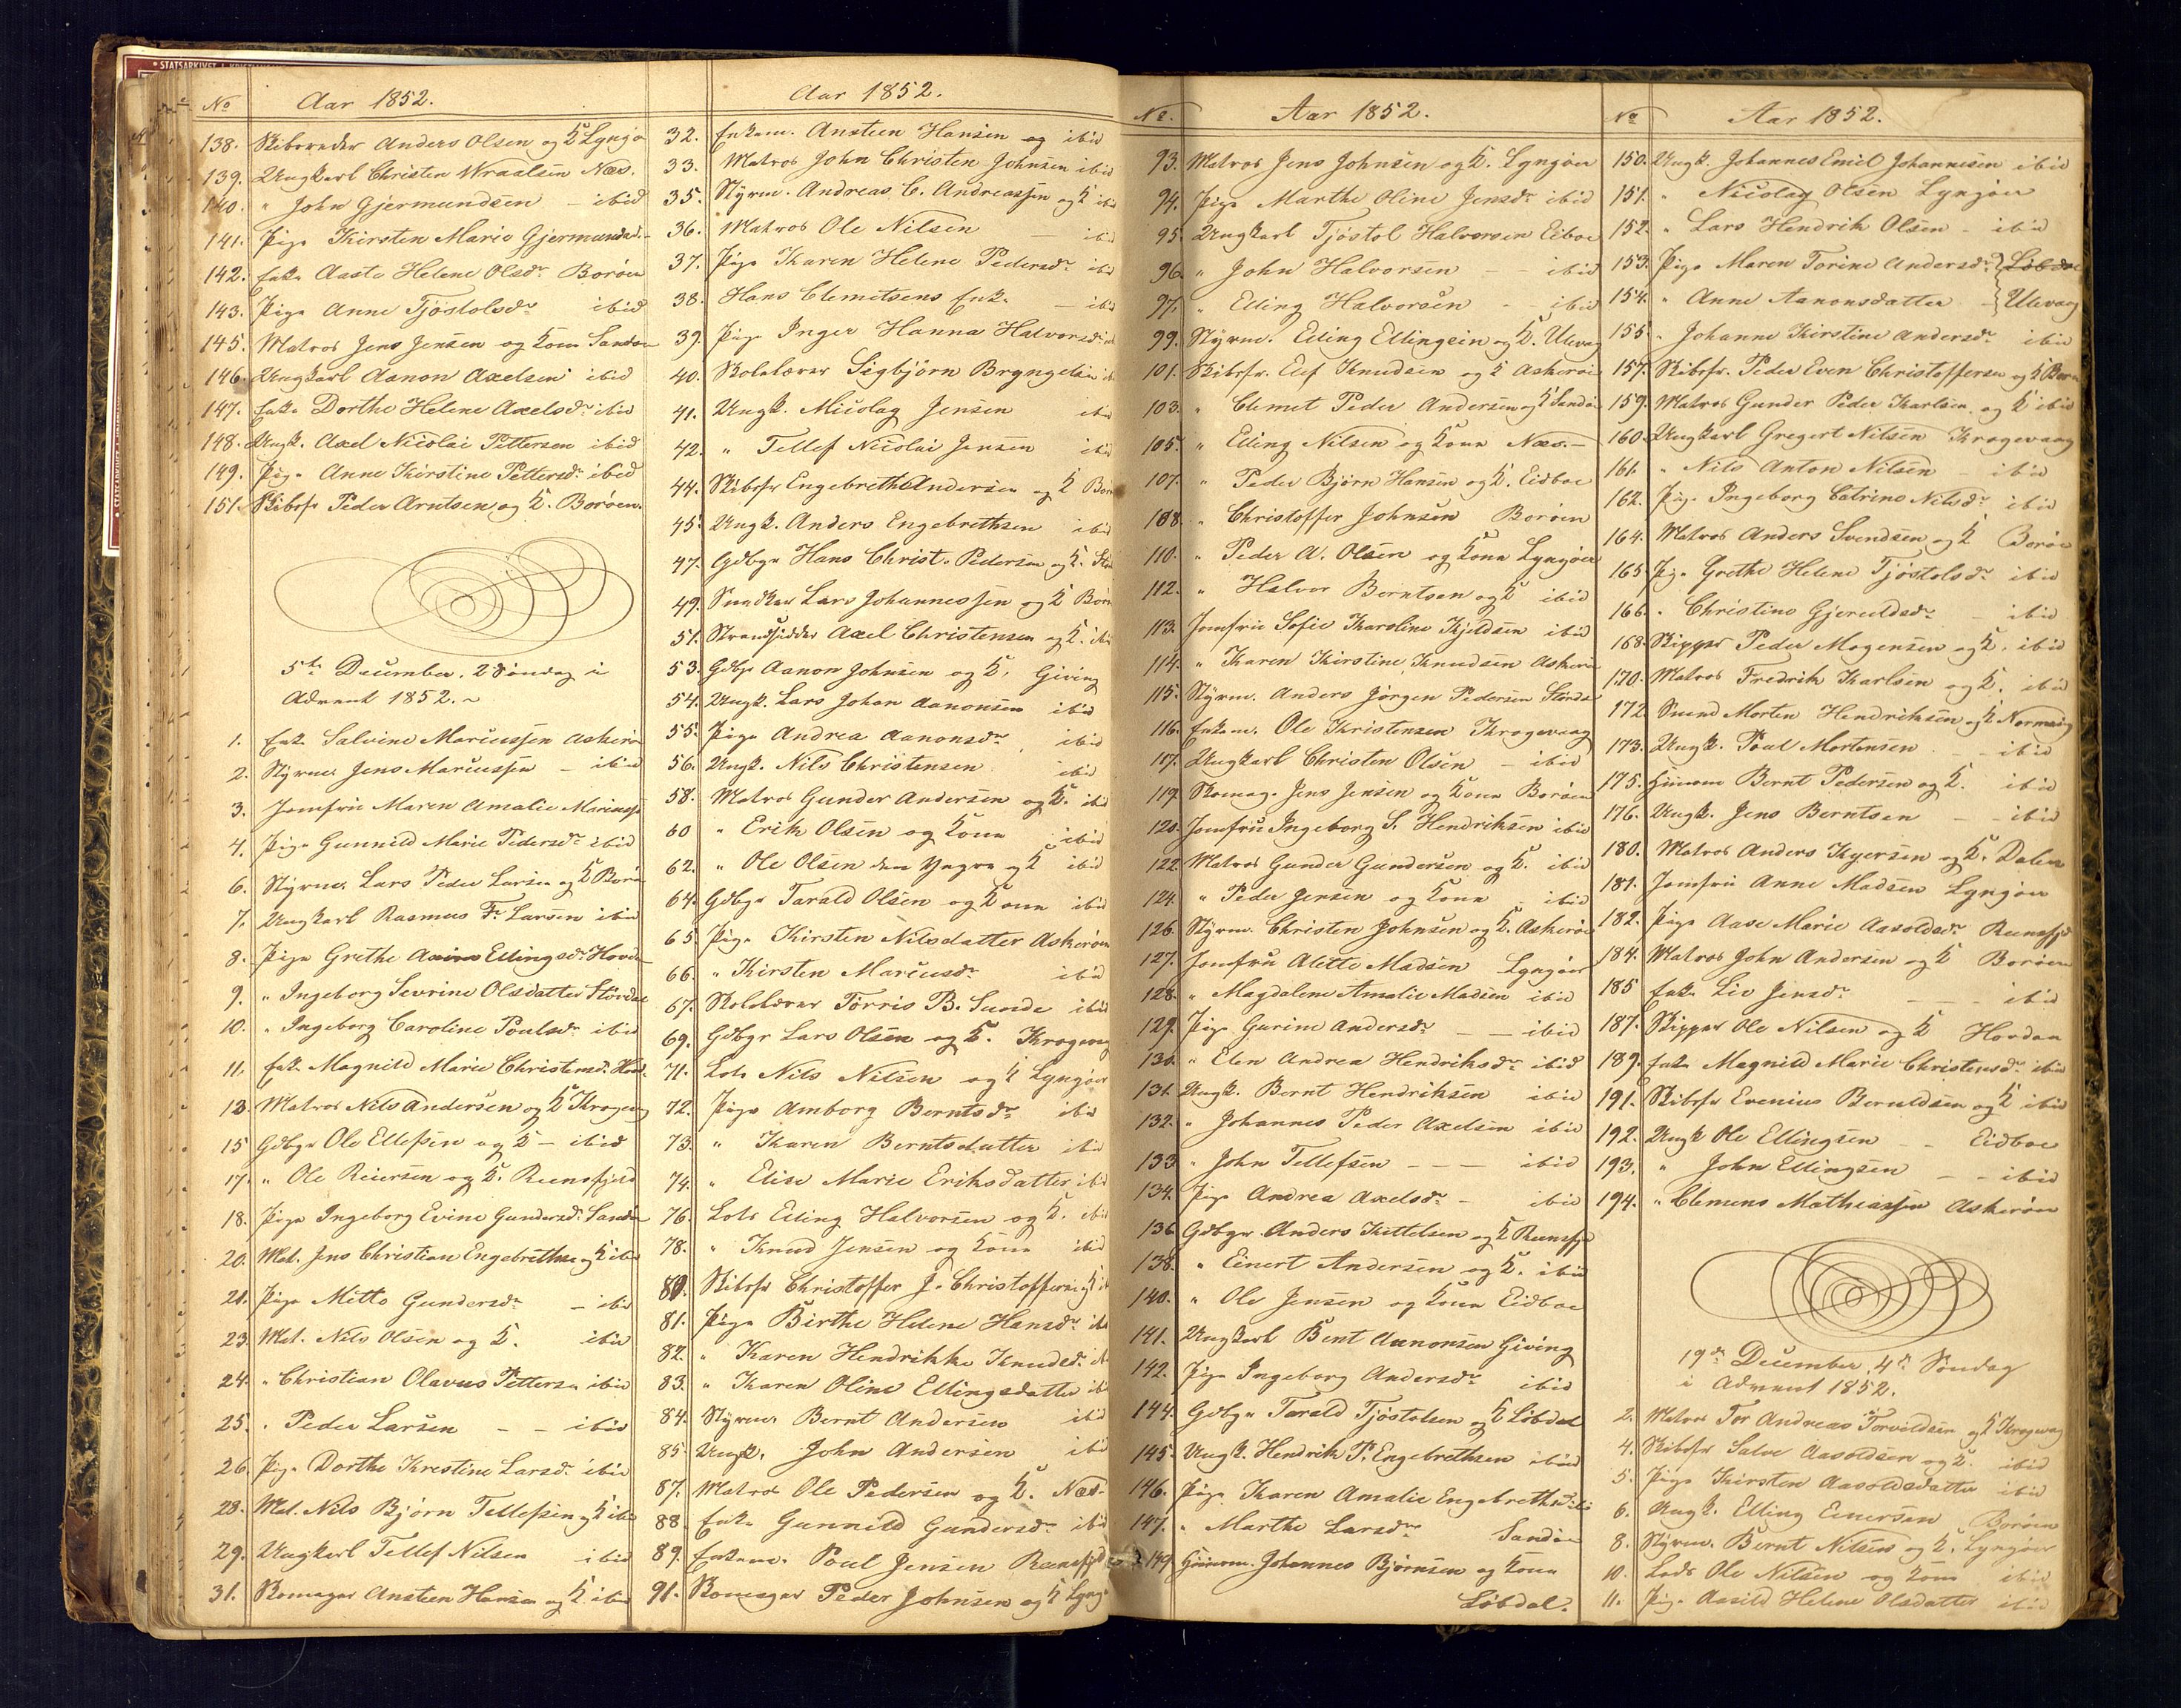 STATSARKIVET I KRISTIANSAND
No Aar 1852.
138. Skibsreder Anders Olsen og K Lyngø
139. Ungkarl Christen Wraalsen Næs.
140. " John Gjermundsen – ibid
141. Pige Kirsten Marie Gjermundsd. –
142. Enke Aaste Helene Olsdr Borøen
143. Pige Anne Tjøstolsdr ibid
145. Matros Jens Jensen og Kone Sandøen
146. Ungkarl Aanon Axelsen ibid
147. Enke Dorthe Helene Axelsdr ibid
148. Ungk. Axel Nicolai Pettersen ibid
149. Pige Anne Kirstine Pettersdr ibid
151. Skibsfr Peder Arntsen og K. Borøen.
5te December. 2 Søndag i
Advent 1852. ~
1. Enke Salvine Mariussen Askerø
2. Styrm. Jens Mariussen – ibid
3. Jomfru Maren Amalie Mariuss
4. Pige Gunnild Marie Pedersdr ibid
6. Styrm. Lars Peder Larsen og K Borø
7. Ungkarl Rasmus F. Larsen ibid
8. Pige Grethe Ellingsdr Hovd
9. " Ingeborg Sevrine Olsdatter Størdal
10. " Ingeborg Caroline Poulsdr ibid
11. Enke Magnild Marie Christensd. Hovd.
13. Matros Nils Andersen og K Krogevag
15 Gdbgr Ole Ellefsen og K – ibid
17. " Ole Reiersen og K. Reensfjeld
18. Pige Ingeborg Evine Gundersd. Sandø
20. Mat. Jens Christian Engebrethse og K ibid
21. Pige Mette Gundersdr – ibid
23. Mat. Nils Olsen og K. ibid
24. " Christian Olavus Petterse ibid
25. " Peder Larsen – – ibid
26. Pige Dorthe Krestine Larsdr ibid
28. Mat. Nils Bjørn Tellefsen og K ibid
29. Ungkarl Tellef Nilsen ibid
31. Skomager Ansteen Hansen og K. ibid
Aar 1852.
32. Enkem. Ansteen Hansen og ibid
33. Matros John Christen Johnsen ibid
35. Styrm. Andreas C. Andreassen og K ibi
36. Matros Ole Nilsen – ibi
37. Pige Karen Helene Pedersdr ibi
38. Hans Clemetsens Enke – ibi
39. Pige Inger Hanna Halvorsdr
40. Skolelærer Sigbjørn Bryngelsen
41. Ungk. Nicolay Jensen ibid
42. " Tellef Nicolai Jensen ibid
44. Skibsfr Engebreth Andersen og K Bor
45. Ungk. Anders Engebrethsen ibid
47. Gdbgr Hans Christ. Pedersen og K.
49. Snedker Lars Johannessen og K Bor
51. Strandsidder Axel Christensen og K. ibi
53. Gdbgr Aanon Johnsen og K. Giving
54. Ungk. Lars Johan Aanonsen ibid
55. Pige Andrea Aanonsdr ibid
56. Ungk. Nils Christensen ibid
58. Matros Gunder Andersen og K. ibid
60 " Erik Olsen og Kone ibid
62. " Ole Olsen den Yngre og K ibid
64. Gdbgr Tarald Olsen og Kone ibid
65. Pige Kirsten Nilsdatter Askerøen
66. " Kirsten Mariusdr ibid
67. Skolelærer Torris B. Sunde ibid
69. Gdbgr Lars Olsen og K. Krogevag
71. Lods Nils Nilsen og K Lyngøer
72. Pige Amborg Berntsdr ibi
73. " Karen Berntsdatter ibi
74. " Elise Marie Eriksdatter ibid
76. Lods Elling Halvorsen og K. ibi
78. " Knud Jensen og Kone ibid
80. Skibsfr Christoffer J. Christoffersen og K
81. Pige Birthe Helene Hansdr ibi
82. " Karen Hendrikke Knudsd.
83. " Karen Oline Ellingsdatter ibi
84. Styrm. Bernt Andersen ibid
85. Ungk. John Andersen ibi
87. Matros Ole Pedersen og K. Næs
88. Enke Gunnild Gundersdr ibid
89. Enkem. Poul Jensen Reensfjeld
91. Skomager Peder Johnsen og K Lyng
No. Aar 1852.
93. Matros Jens Johnsen og K. Lyngøer
94. Pige Marthe Oline Jensdr ibid
95. Ungkarl Tjøstol Halvorsen Eiboe
96. " John Halvorsen – – ibid
97. " Elling Halvorsen – ibid
99. Styrm. Elling Ellingsen og K. Ulevag
101. Skibsfr. Elef Knudsen og K Askerøe
103. " Clemet Peder Andersen og K Sandøe
105. " Elling Nilsen og Kone Næs. –
107. " Peder Bjørn Hansen og K. Eidboe
108. " Christoffer Johnsen Borøen
110. " Peder A. Olsen og Kone Lyngøer
112. " Halvor Berntsen og K ibid
113. Jomfrue Sofie Karoline Kjeldsen ibid
114. " Karen Kirstine Knudsen Askerø
115. Styrm. Anders Jørgen Pedersen Størdal
116. Enkem. Ole Kristensen Krogevaag
117. Ungkarl Christen Olsen – ibid
119. Skomag. Jens Jensen og Kone Borøen
120. Jomfru Ingeborg S. Hendriksen ibid
122. Matros Gunder Gundersen og K. ibid
124. " Peder Jensen og Kone ibid
126. Styrm. Christen Johnsen og K. Askerøe
127. Jomfru Alette Madsen Lyngøer
128. " Magdalene Amalie Madsen ibid
129. Pige Gurine Andersdr – – ibid
130. " Elen Andrea Hendriksdr ibid
131. Ungk. Bernt Hendriksen ibid
132. " Johannes Peder Axelsen ibid
133 " John Tellefsen – – – ibid
134. Pige Andrea Axelsdr – ibid
136. Gdbgr. Anders Kittelsen og K Reensfje
138. " Einert Andersen og K. ibid
140. " Ole Jensen og Kone Eidboe
141. Ungkarl Bent Aanonsen Giving
142. Pige Ingeborg Andersdr ibid
144. Gdbgr Tarald Tjøstolsen og K Løbdal
145. Ungk. Hendrik P. Engebrethsen ibid
146. Pige Karen Amalie Engebrethsd. ibi
147. " Marthe Larsdr Sandøe
149. Huusm. Johannes Bjørnsen og Kone
Løbdal.
No Aar 1852.
150. Ungk. Johannes Emil Johannesen ibid
151. " Nicolay Olsen Lyngøer
152. " Lars Hendrik Olsen – ibid
153. Pige Maren Torine Andersdr Løbdal
154. " Anne Aanonsdatter – Ulevag
155. " Johanne Kirstine Andersdr ibid
157. Skibsfr. Peder Even Christoffersen og K Borø
159. Matros Gunder Peder Karlsen og K ibid
160. Ungkarl Gregert Nilsen Krogevaag
161. " Nils Anton Nilsen – ibid
162. Pige Ingeborg Catrine Nilsdr ibid
164. Matros Anders Svendsen og K Borøe
165 Pige Grethe Helene Tjøstolsdr ibid
166. " Christine Gjeruldsdr – ibid
168. Skipper Peder Mogensen og K. ibid
170. Matros Fredrik Karlsen og K. ibid
172. Smed Morten Hendriksen og K Normevig
173. Ungk. Poul Mortensen – – ibid
175. Huusm Bernt Pedersen og K. ibid
176. Ungk. Jens Berntsen – – ibid
180. Matros Anders Kyersen og K. Dalen
181. Jomfru Anne Madsen Lyngøer
182. Pige Aase Marie Aasoldsdr Reensfjd
184. Matros John Andersen og K Borøen
185 Enke Liv Jensdr – – – ibid
187. Skipper Ole Nilsen og K Hovdan
189. Enke Magnild Marie Christensdr ibid
191. Skibsfr Evenius Beruldsen og K ibid
192. Ungk Ole Ellingsen – – Eidboe
193. " John Ellingsen – – ibid
194. " Clemens Mathiassen Askerøen
19de December, 4de Søndag
i Advent 1852.
2. Matros Tor Andreas Torvildsen og K Krogevag
4. Skibsfr Salve Aasoldsen og K. ibid
5. Pige Kirsten Aasoldsdatter ibid
6. Ungk. Elling Einersen Borøen
8. Styrm. Bernt Nilsen og K. Lyngøer
10. Lods Ole Nilsen og Kone ibid
11. Pige Aasild Helene Olsdatter ibid